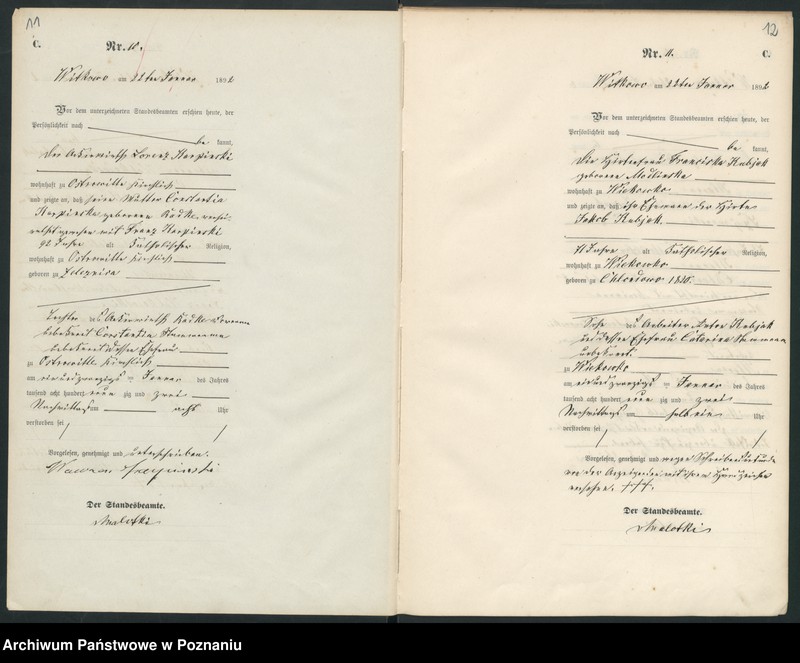 11
C.
Nr. 10.
Witkowo am 22ten Januar 1892
Vor dem unterzeichneten Standesbeamten erschien heute, der
Persönlichkeit nach
be kannt,
der Ackerwirth Lorenz Karpinski
wohnhaft zu Ostrowitte kirchlich
und zeigte an, daß seine Mutter Constantia
Karpinska geborene Radke,
mit Franz Karpinski
92 Jahre alt Katholischer Religion,
wohnhaft zu Ostrowitte kirchlich
geboren zu
Tochter des Ackerwirths Radke
unbekannt Constantia
unbekannt dessen Ehefrau
zu Ostrowitte kirchlich
am ein und zwanzigsten Januar des Jahres
tausend acht hundert neun zig und zwei
Nachmittags um acht Uhr
verstorben sei
Vorgelesen, genehmigt und unterschrieben.
Der Standesbeamte.
Malotki
12
C.
Nr. 11.
Witkowo am 22ten Januar 1892
Vor dem unterzeichneten Standesbeamten erschien heute, der
Persönlichkeit nach
be kannt,
die Hirtenfrau Franciska Kubjak
geborene
wohnhaft zu Wiekowko
und zeigte an, daß ihr Ehemann der Hirte
Jakob Kubjak
71 Jahre alt Katholischer Religion,
wohnhaft zu Wiekowko
geboren zu 1820.
Sohn des Arbeiters Anton Kubjak
und dessen Ehefrau Catarina
unbekannt.
zu Wiekowko
am ein und zwanzigsten Januar des Jahres
tausend acht hundert neun zig und zwei
Nachmittags um halb ein Uhr
verstorben sei
Vorgelesen, genehmigt und wegen Schreibensunkunde
von der Anzeigenden mit ihrem Handzeichen
versehen. +++.
Der Standesbeamte.
Malotki
Archiwum Państwowe w Poznaniu